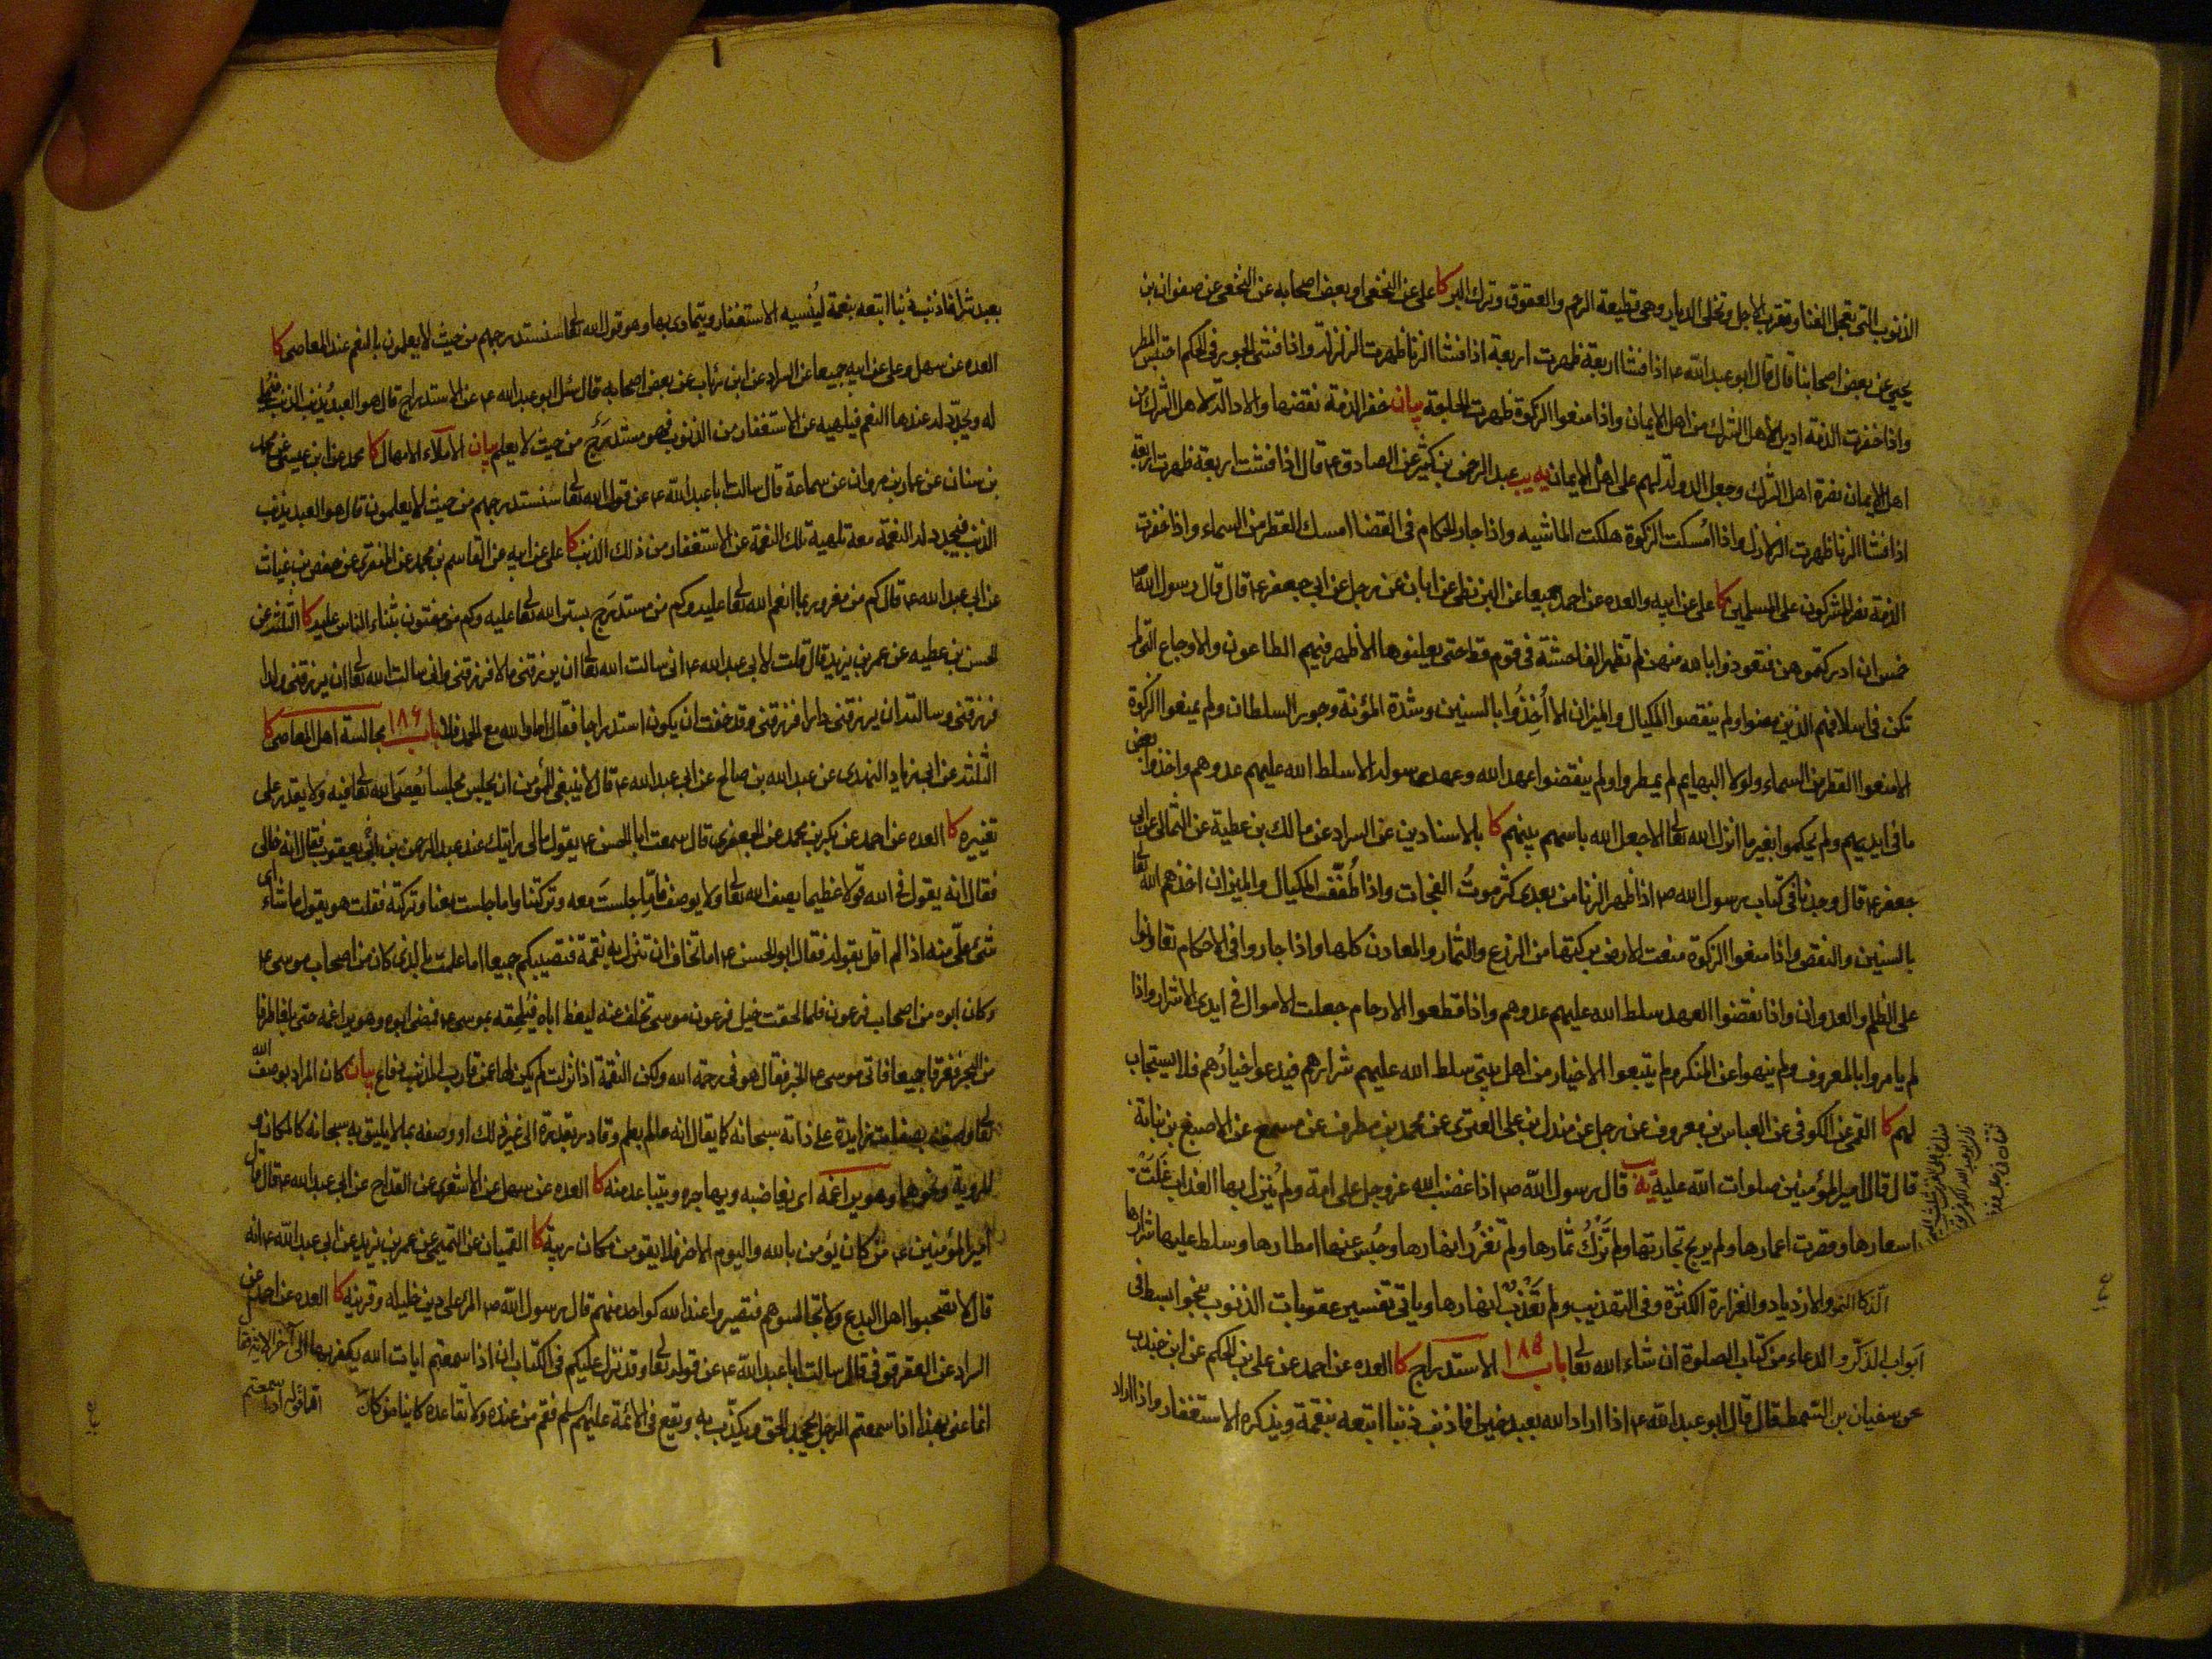 الذنوب التي تعجل الفناء وتقرب الاجل وتخلى الديار وهى قطيعة الرحم والعقوق وترك البر كا على عن النخعى او بعض اصحابه عن النخعى عن صفوان بن
يحيى عن بعض اصحابنا قال قال ابو عبد الله ع اذا فشا اربعة ظهرت اربعة اذا فشا الزنا ظهرت الزلزلة واذا فشى الجور فى الحكم احتبس المطر
واذا خفرت الذمة اديل لاهل الشرك من اهل الايمان واذا منعوا الزكوة ظهرت الحاجة بيان خفر الذمة نقضها والادالة لاهل الشرك من
اهل الايمان نصرة اهل الشرك وجعل الدولة لهم على اهل الايمان يه يب عبد الرحمن بن كثير عن الصادق ع قال اذا فشت اربعة ظهرت اربعة
اذا فشا الزنا ظهرت الزلازل واذا امسكت الزكوة هلكت الماشيه واذا جار الحكام فى القضا امسك القطر من السماء واذا خفرت
الذمة نصر المشركون على المسلمين كا على عن ابيه والعده عن احمد جميعا عن البزنطى عن ابان عن رجل عن ابى جعفر ع قال قال رسول الله ص
خمس ان ادركتموهن فتعوذوا بالله منهن لم تظهر الفاحشة فى قوم قط حتى يعلنوها الا ظهر فيهم الطاعون والاوجاع التى لم
تكن فى اسلافهم الذين مضوا ولم ينقصوا المكيال والميزان الا اُخِذُوا بالسنين وشدة المؤنة وجور السلطان ولم يمنعوا الزكوة
الا منعوا القطر من السماء ولولا البهايم لم يمطروا ولم ينقضوا عهد الله وعهد رسوله الا سلط الله عليهم عدوهم واخذوا بعض
ما فى ايديهم ولم يحكموا بغير ما انزل الله تعا الا جعل الله باسهم بينهم كا بالاسنادين عن السراد عن مالك بن عطية عن الثمالى عن ابى
جعفر ع قال وجدنا فى كتاب رسول الله ص اذا ظهر الزنا من بعدى كثر موتُ الفجات واذا طُفِّفَ المكيال والميزان اخذهم الله تعا
بالسنين والنقص واذا منعوا الزكوة منعت الارض بركتها من الزرع والثمار والمعادن كلها واذا جاروا فى الاحكام تعاونوا
على الظلم والعدوان واذا نقضوا العهد سلط الله عليهم عدوهم واذا قطعوا الارحام جعلت الاموال فى ايدى الاشرار واذا
لم يامروا بالمعروف ولم ينهوا عن المنكر ولم يتبعوا الاخيار من اهل بيتى سلط الله عليهم شرارهم فيدعوا خيارُهم فلا يستجاب
لهم كا القمى عن الكوفى عن العباس بن معروف عن رجل عن مندل بن على العنزى عن محمد بن مطرف عن مسمع عن الاصبغ بن نباتة
قال قال امير المؤمنين صلوات الله عليه يه يب قال رسول الله ص اذا غضب الله عز وجل على امة ولم يُنزل بها العذاب غَلَتْ
اسعارها وقصرت اعمارها ولم يربح تجارتها ولم تَزْكُ ثمارها ولم تَغْزُر انهارها وحُبس عنها امطارها وسلط عليها شرارها
الذكا النمو والازدياد والغزارة الكثرة وفى التهذيب ولم تَعْذُب انهارها وياتى تفسير عقوبات الذنوب بنحو ابسط فى
ابواب الذكر والدعاء من كتاب الصلوة ان شاء الله تعا باب ١٨٥ الاستدراج كا العده عن احمد عن على بن الحكم عن ابن جندب
عن سفيان بن السمط قال قال ابو عبد الله ع اذا اراد الله بعبد خيرا فاذنب ذنبا اتبعه بنقمة ويذكره الاستغفار واذا اراد
بعبد شرا فاذنب ذنبا اتبعه بنعمة لينُسيه الاستغفار ويتمادى بها وهو قول الله تعا سنستدرجهم من حيث لا يعلمون بالنعم عند المعاصى كا
العده عن سهل وعلى عن ابيه جميعا عن السراد عن ابن رئاب عن بعض اصحابه قال سئل ابو عبد الله ع عن الاستدراج قال هو العبد يُذنب الذنب فيملى
له ويجدّد له عندها النعم فيلهيه عن الاستغفار من الذنوب فهو مستدرَج من حيث لا يعلم بيان الاملاء الامهال كا محمد عن ابن عيسى عن محمد
بن سنان عن عمار بن مروان عن سماعة قال سالت ابا عبد الله ع عن قول الله تعا سنستدرجهم من حيث لا يعلمون قال هو العبد يذنب
الذنب فيجدد له النعمة معه تلهيه تلك النعمة عن الاستغفار من ذلك الذنب كا على عن ابيه عن القاسم بن محمد عن المنقرى عن حفص بن غياث
عن ابى عبد الله ع قال كم من مغرور بما انعم الله تعا عليه وكم من مستدرَج بستر الله تعا عليه وكم من مفتون بثناء الناس عليه كا الثلثة عن
الحسن بن عطيه عن عمر بن يزيد قال قلت لابى عبد الله ع انى سالت الله تعا ان يرزقنى مالا فرزقنى وانى سالت الله تعا ان يرزقنى ولدا
فرزقنى وسالته ان يرزقنى دارا فرزقنى وقد خفت ان يكون استدراجا فقال اما والله مع الحمد فلا باب ١٨٦ مجالسة اهل المعاصى كا
الثلثة عن ابى زياد النهدى عن عبد الله بن صالح عن ابى عبد الله ع قال لا ينبغى للمؤمن ان يجلس مجلسا يُعصَى الله تعا فيه ولا يقدر على
تغييره كا العده عن احمد عن بكر بن محمد عن الجعفرى قال سمعت ابا الحسن ع يقول ما لى رايتك عند عبد الرحمن بن يعقوب فقال انه خالى
فقال انه يقول فى الله قولا عظيما يصف الله تعا ولا يوصف فاما جلستَ معه وتركتنا واما جلست معنا وتركته فقلت هو يقول ما شاء اى
شئ علىّ منه اذا لم اقل بقوله فقال ابو الحسن ع اما تخاف ان تنزل به نقمة فتصيبكم جميعا اما علمت بالذى كان من اصحاب موسى ع
وكان ابوه من اصحاب فرعون فلما لحقت خيل فرعون موسى تخلف عنه ليعظ اباه فيُلحقه بموسى ع فمضى ابوه وهو يراغمه حتى بلغا طرفا
من البحر فغرقا جميعا فاتى موسى ع الخبر فقال هو فى رحمة الله ولكن النقمة اذا نزلت لم يكن لها عمن قارب المذنب دفاع بيان كان المراد بوصف الله
تعا وصفه بصفات زايدة على ذاته سبحانه كما يقال انه عالم بعلم وقادر بقدرة الى غير ذلك او وصفه بما لا يليق به سبحانه كالمكان و
الروية ونحوهما وهو يراغمه اى يغاضبه ويهاجره ويتباعد منه كا العده عن سهل عن الاشعرى عن القداح عن ابى عبد الله ع قال قال
امير المؤمنين ع من كان يؤمن بالله واليوم الاخر فلا يقومن مكان ريبة كا القميان عن التميمى عن عمر بن يزيد عن ابى عبد الله ع انه
قال لا تصحبوا اهل البدع ولا تجالسوهم فتصيروا عند الله كواحد منهم قال رسول الله ص المرء على دين خليله وقرينه كا العده عن احمد عن
السراد عن العقرقوفى قال سالت ابا عبد الله ع عن قوله تعا وقد نزل عليكم فى الكتاب ان اذا سمعتم ايات الله يكفر بها الى آخر الاية فقا
انما عنى بهذا اذا سمعتم الرجل يجحد الحق ويكذّب به ويقع فى الائمة عليهم السلم فقم من عنده ولا تقاعده كاينا من كان